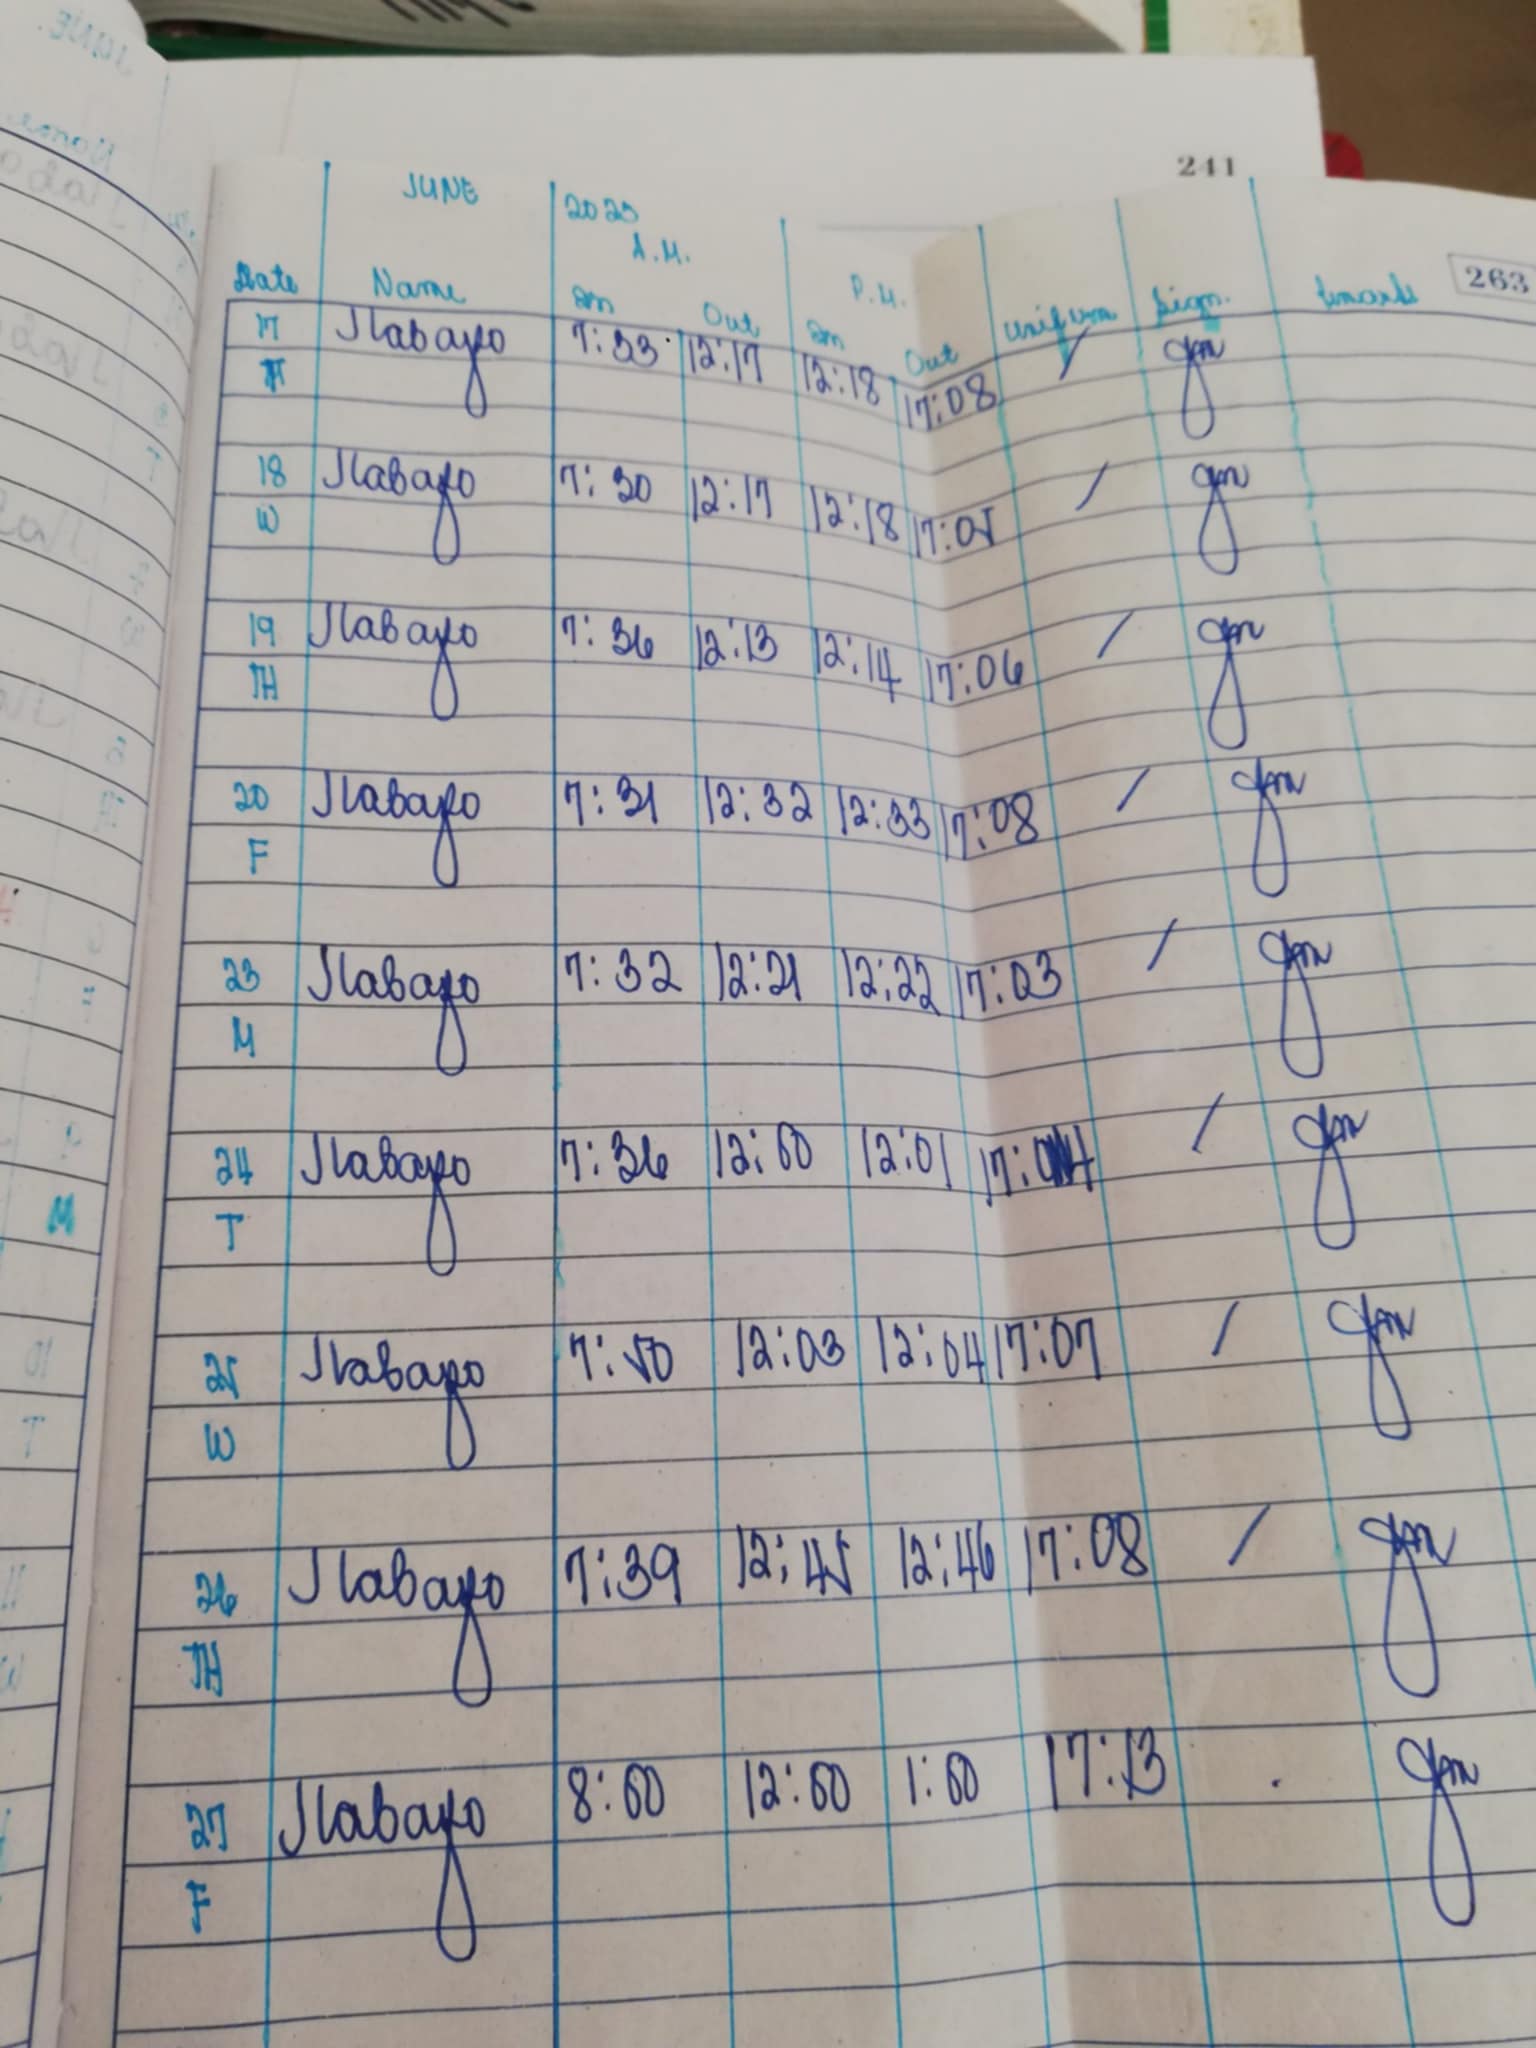 241
263
JUNE 2025
A.M. P.M.
Date Name In Out In Out Uniform Sign. Remarks
17 Jlabayo 7:33 12:17 12:18 17:08 /
T
18 Jlabayo 7:30 12:17 12:18 17:05 /
W
19 Jlabayo 7:36 12:13 12:14 17:06 /
TH
20 Jlabayo 7:31 12:32 12:33 17:08 /
F
23 Jlabayo 7:32 12:21 12:22 17:03 /
M
24 Jlabayo 7:36 12:00 12:01 17:04 /
T
25 Jlabayo 7:50 12:03 12:04 17:07 /
W
26 Jlabayo 7:39 12:45 12:46 17:08 /
TH
27 Jlabayo 8:00 12:00 1:00 17:13
F